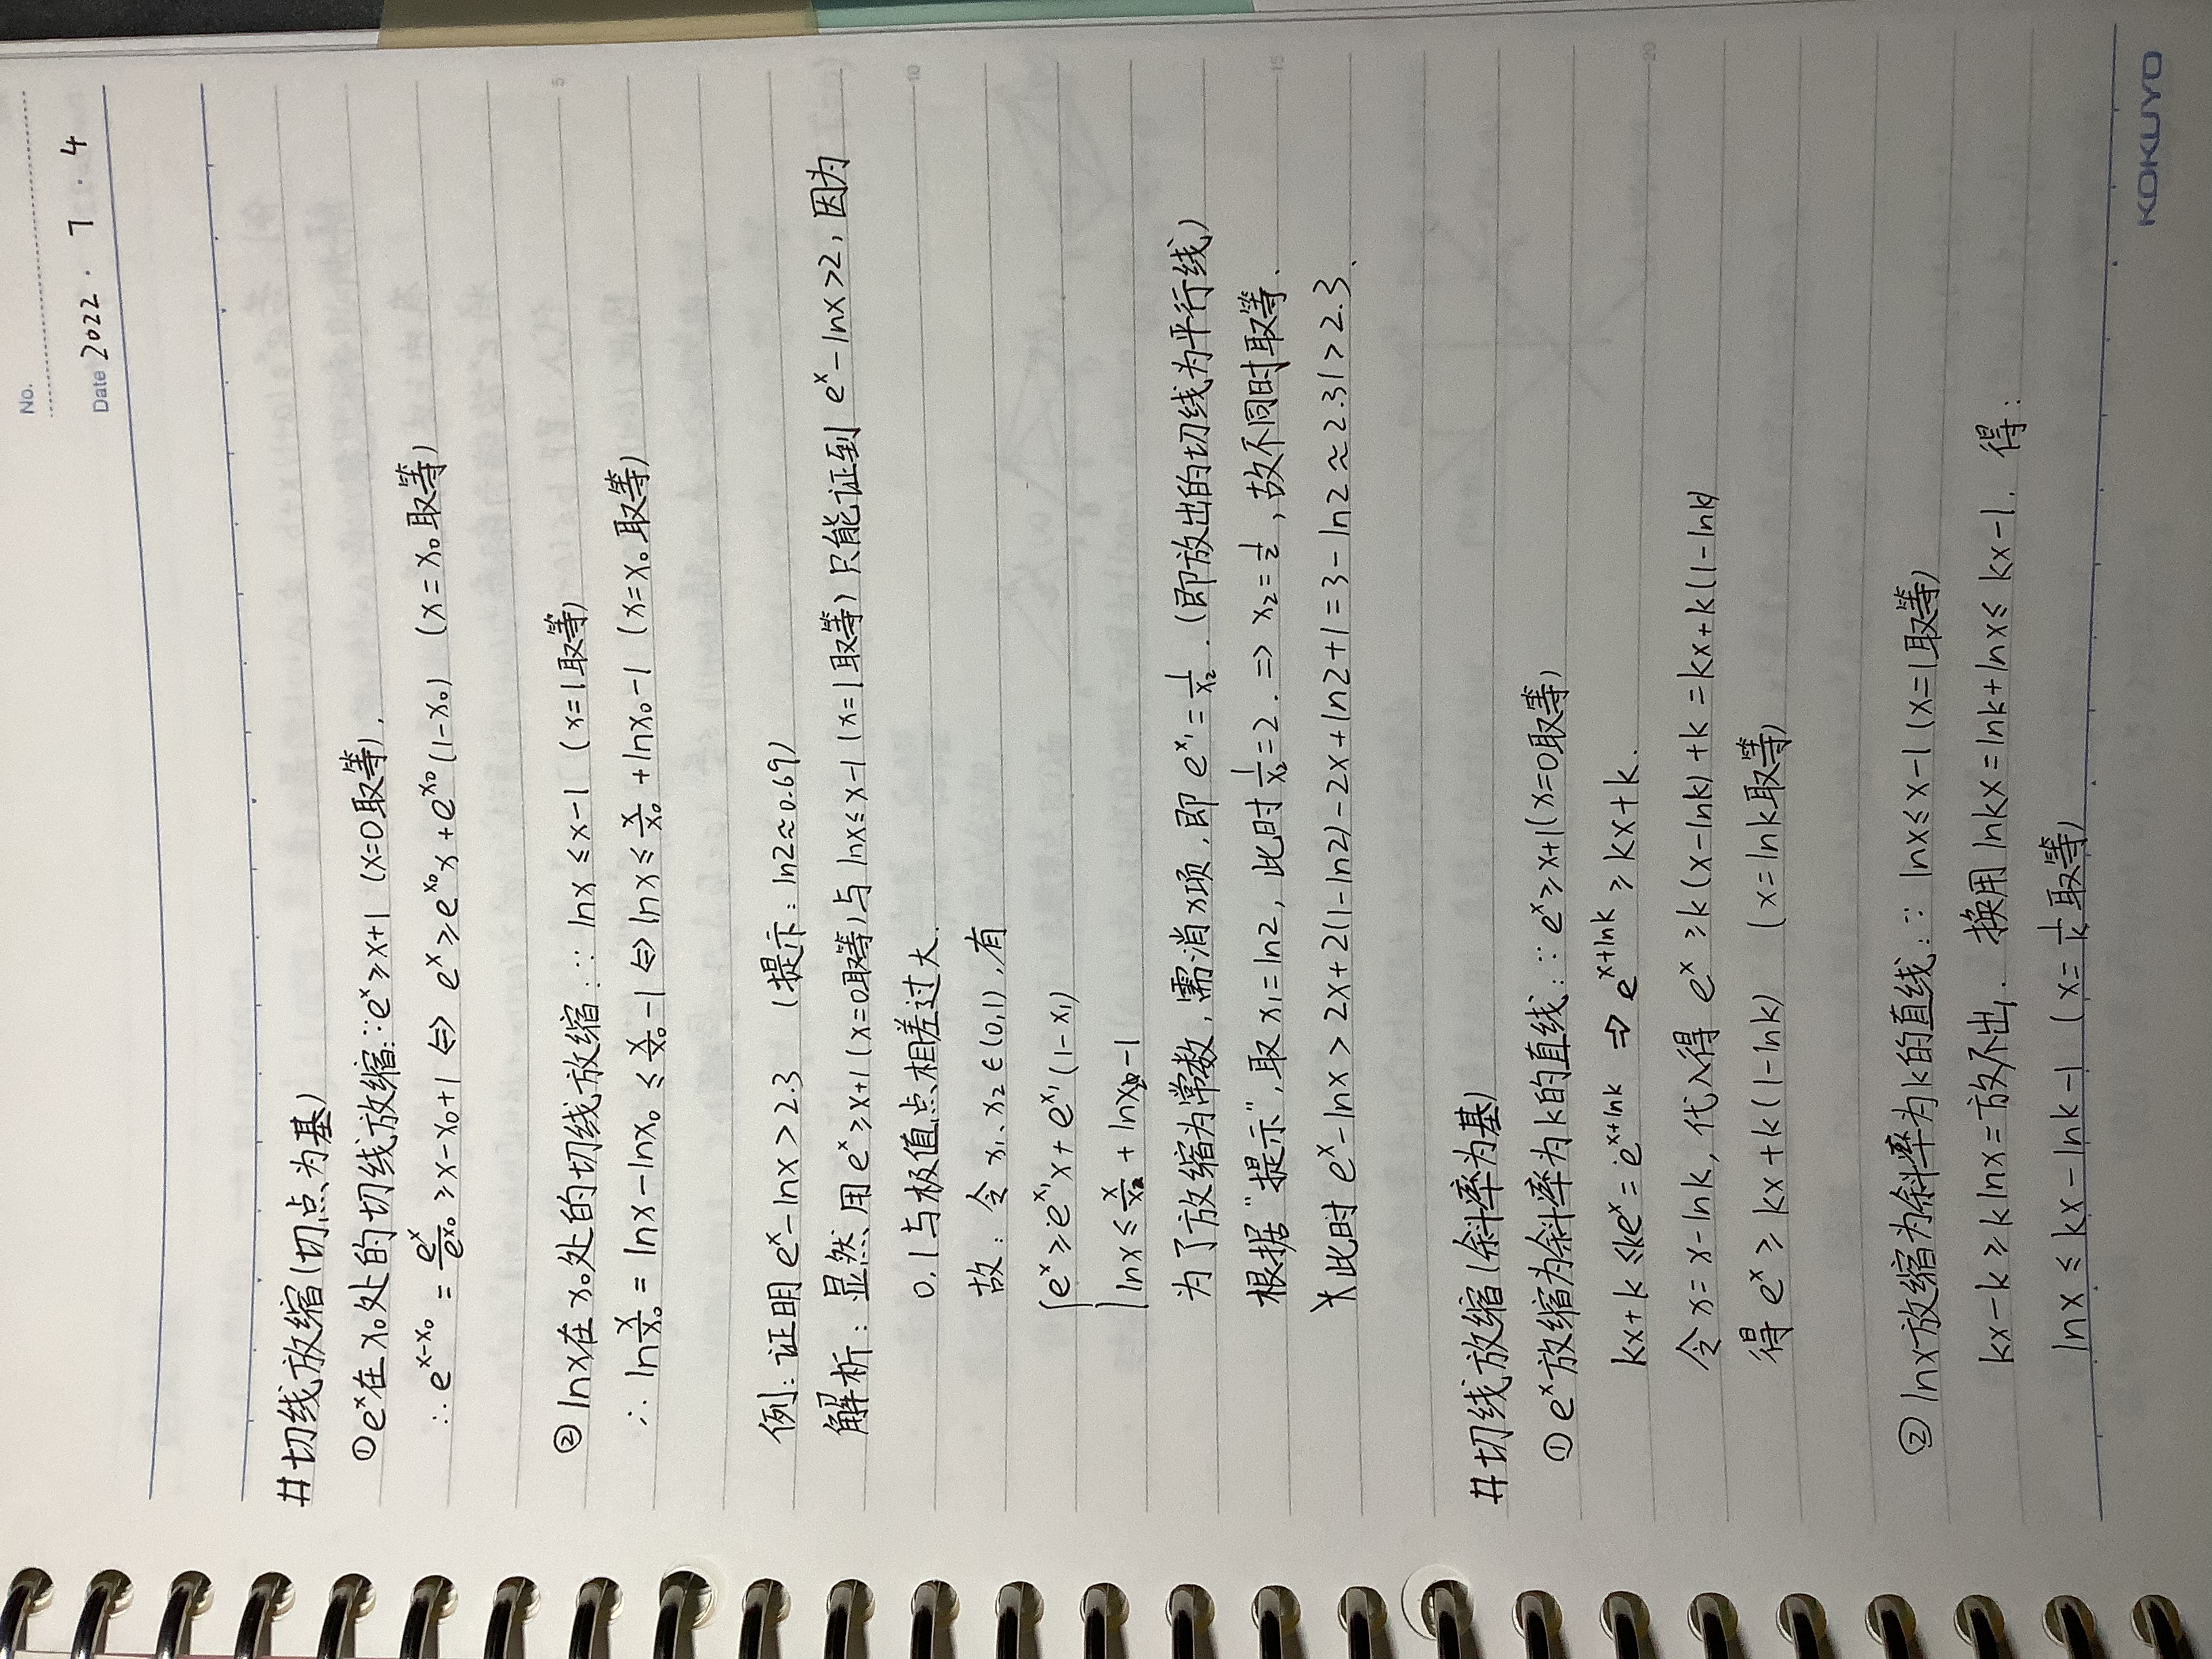 No.
Date 2022 · 7 · 4
#切线放缩(切点为基)
①eˣ在x₀处的切线放缩:∵eˣ≥x+1 (x=0取等).
∴e^(x-x₀) = eˣ/e^(x₀) ≥x-x₀+1 ⇔ eˣ≥e^(x₀)x+e^(x₀)(1-x₀) (x=x₀取等)
5
②lnx在x₀处的切线放缩:∵lnx≤x-1 (x=1取等)
∴ln x/x₀ = lnx-lnx₀ ≤ x/x₀ -1 ⇔ lnx≤ x/x₀ +lnx₀-1 (x=x₀取等)
例:证明eˣ-lnx>2.3 (提示:ln2≈0.69)
解析:显然用eˣ≥x+1(x=0取等)与lnx≤x-1(x=1取等)只能证到eˣ-lnx>2,因为
10
0.1与极值点相差过大.
故:令x₁、x₂∈(0,1),有
{eˣ≥e^(x₁)x+e^(x₁)(1-x₁)
lnx≤ x/x₂ +lnx₂-1
为了放缩为常数,需消x项,即e^(x₁)=1/x₂.(即放出的切线为平行线)
15
根据"提示",取x₁=ln2,此时1/x₂=2.⇒x₂=1/2,故不同时取等.
此时eˣ-lnx>2x+2(1-ln2)-2x+ln2+1=3-ln2≈2.31>2.3.
#切线放缩(斜率为基)
①eˣ放缩为斜率为k的直线:∵eˣ≥x+1(x=0取等)
20
kx+k≤keˣ=e^(x+lnk) ⇒ e^(x+lnk)≥kx+k.
令x=x-lnk,代入得eˣ≥k(x-lnk)+k=kx+k(1-lnk)
得eˣ≥kx+k(1-lnk) (x=lnk取等)
②lnx放缩为斜率为k的直线:∵lnx≤x-1(x=1取等)
kx-k≥klnx=放不出,换用lnkx=lnk+lnx≤kx-1,得:
lnx≤kx-lnk-1 (x=1/k取等)
KOKUYO